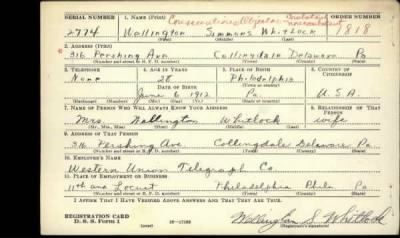 SERIAL NUMBER 1. NAME (Print) Conscientious Objector ORDER NUMBER
2774 Wellington Simmons Whitlock 1818
(First) (Middle) (Last)
2. ADDRESS (Print)
316 Pershing Ave Collingdale Delaware Pa
(Number and street or R. F. D. number) (Town) (County) (State)
3. TELEPHONE 4. AGE IN YEARS 5. PLACE OF BIRTH 6. COUNTRY OF CITIZENSHIP
None 28 Philadelphia
DATE OF BIRTH
June 6 1912 Pa. U.S.A.
(Exchange) (Number) (Mo.) (Day) (Yr.) (State or country)
7. NAME OF PERSON WHO WILL ALWAYS KNOW YOUR ADDRESS 8. RELATIONSHIP OF THAT PERSON
Mrs. Wellington Whitlock wife
(Mr., Mrs., Miss) (First) (Middle) (Last)
9. ADDRESS OF THAT PERSON
316 Pershing Ave Collingdale Delaware Pa.
(Number and street or R. F. D. number) (Town) (County) (State)
10. EMPLOYER'S NAME
Western Union Telegraph Co
11. PLACE OF EMPLOYMENT OR BUSINESS
11th and Locust Philadelphia Phila Pa.
(Number and street or R. F. D. number) (Town) (County) (State)
I AFFIRM THAT I HAVE VERIFIED ABOVE ANSWERS AND THAT THEY ARE TRUE.
REGISTRATION CARD
D. S. S. Form 1 (over) 16-17105 Wellington S. Whitlock
(Registrant's signature)